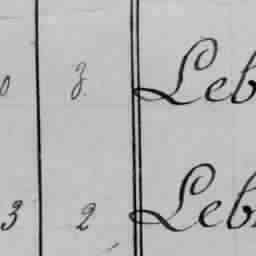 0 3. Leb
3 2 Leb